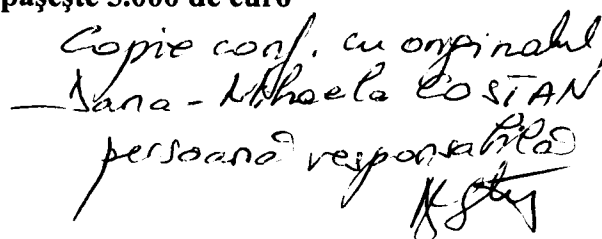 pășește 5.000 de euro
Copie conf. cu originalul
Dana-Mihaela COSTAN
persoană responsabilă